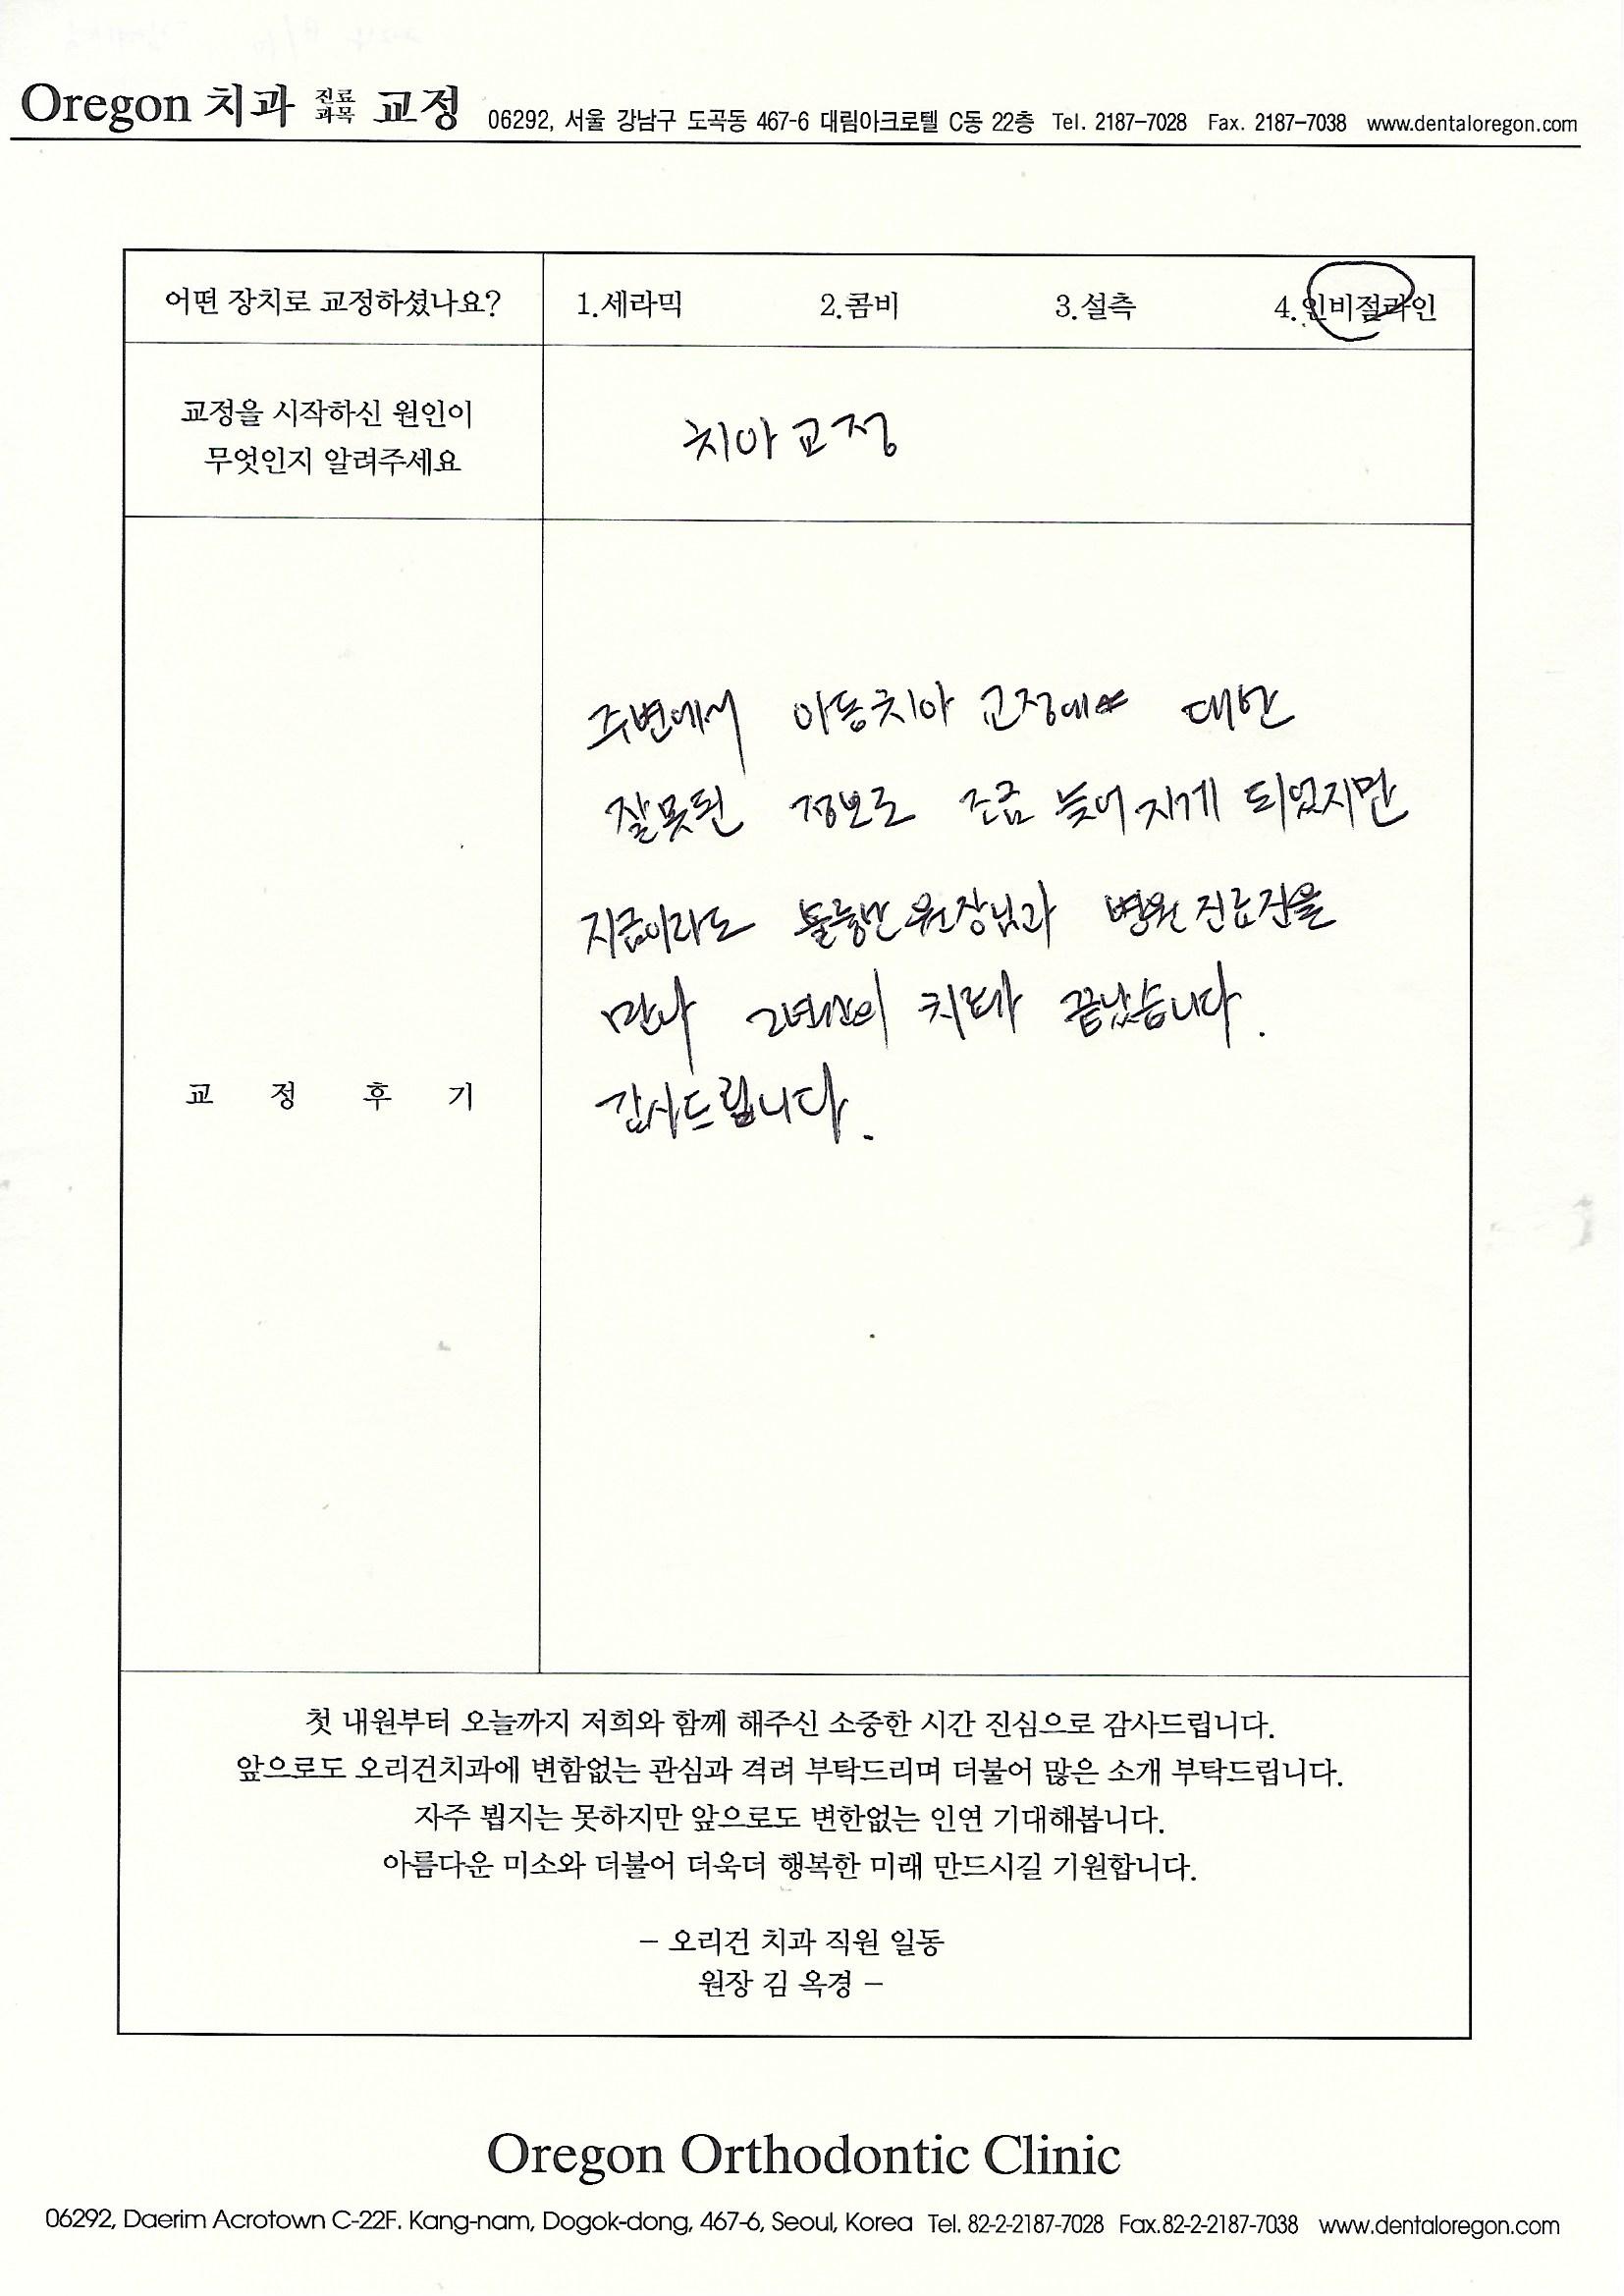 Oregon 치과 진료과목 교정 06292, 서울 강남구 도곡동 467-6 대림아크로텔 C동 22층 Tel. 2187-7028 Fax. 2187-7038 www.dentaloregon.com
어떤 장치로 교정하셨나요? 1.세라믹 2.콤비 3.설측 4.인비절라인
교정을 시작하신 원인이
무엇인지 알려주세요
치아 교정
교 정 후 기
주변에서 아동치아 교정에 대한
잘못된 정보로 조금 늦어지게 되었지만
지금이라도 훌륭한 원장님과 병원 진료진을
만나 2년간의 치료가 끝났습니다.
감사드립니다.
첫 내원부터 오늘까지 저희와 함께 해주신 소중한 시간 진심으로 감사드립니다.
앞으로도 오리건치과에 변함없는 관심과 격려 부탁드리며 더불어 많은 소개 부탁드립니다.
자주 뵙지는 못하지만 앞으로도 변한없는 인연 기대해봅니다.
아름다운 미소와 더불어 더욱더 행복한 미래 만드시길 기원합니다.
– 오리건 치과 직원 일동
원장 김 옥경 –
Oregon Orthodontic Clinic
06292, Daerim Acrotown C-22F. Kang-nam, Dogok-dong, 467-6, Seoul, Korea Tel. 82-2-2187-7028 Fax.82-2-2187-7038 www.dentaloregon.com